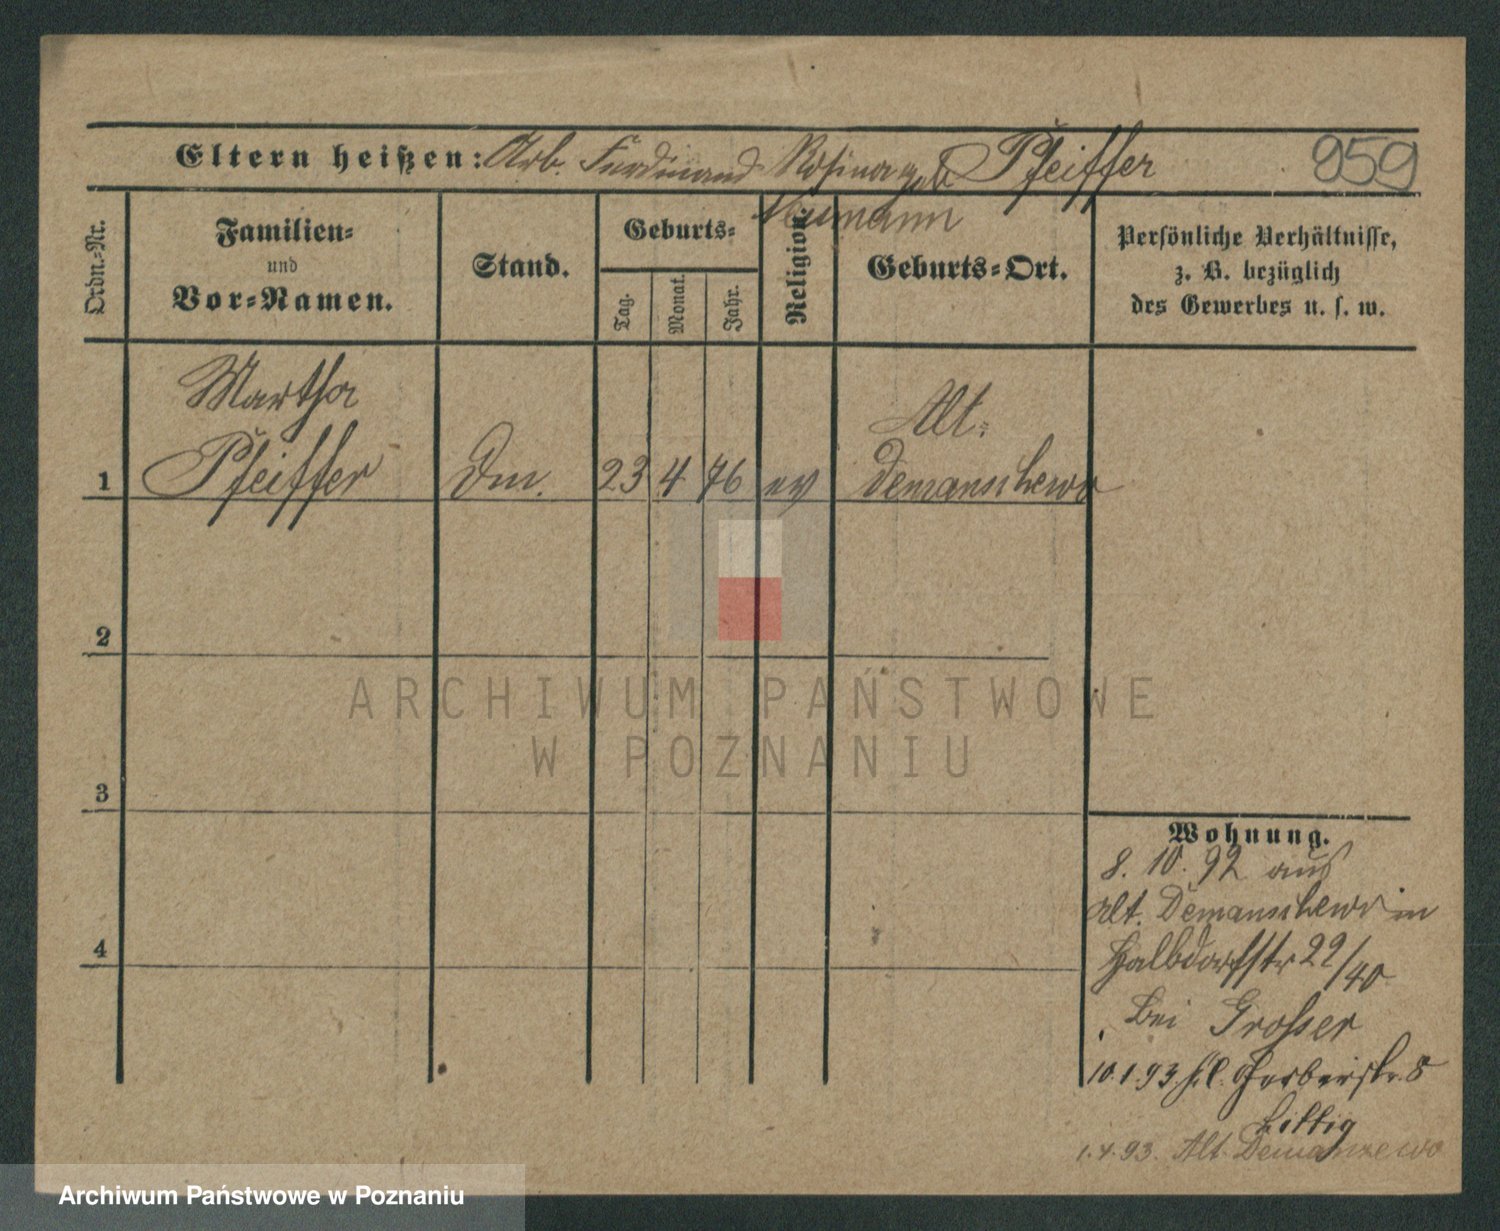 Eltern heißen: Arb. Ferdinand Rosina geb Pfeiffer 959
Neumann
Ordn.-Nr.
Familien-
und
Vor-Namen.
Stand.
Geburts-
Tag.
Monat.
Jahr.
Religion.
Geburts-Ort.
Persönliche Verhältnisse,
z. B. bezüglich
des Gewerbes u. s. w.
Martha Alt-
1 Pfeiffer Dm. 23 4 76 ev Demanschewo
2
3
4
ARCHIWUM PAŃSTWOWE
W POZNANIU
Wohnung.
8. 10. 92 aus
Alt. Demanschewo in
Halbdorfstr 22/40
bei Grosser
10.1.93. kl. Gerberstr. 8
1.4.93. Alt Demanzewo
Archiwum Państwowe w Poznaniu